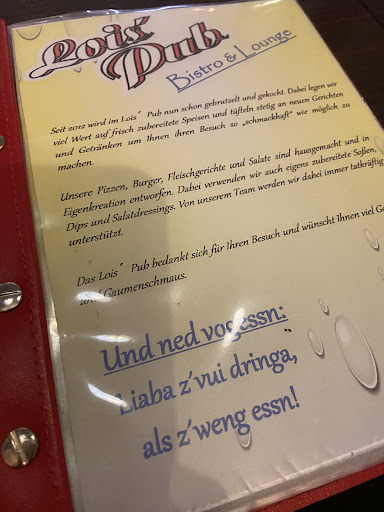 Lois' Pub
Bistro & Lounge
Seit 2012 wird im Lois´ Pub nun schon gebrutzelt und gekocht. Dabei legen wir
viel Wert auf frisch zubereitete Speisen und tüfteln stetig an neuen Gerichten
und Getränken um Ihnen ihren Besuch so „schmackhaft" wie möglich zu
machen.
Unsere Pizzen, Burger, Fleischgerichte und Salate sind hausgemacht und in
Eigenkreation entworfen. Dabei verwenden wir auch eigens zubereitete Soßen,
Dips und Salatdressings. Von unserem Team werden wir dabei immer tatkräftig
unterstützt.
Das Lois´ Pub bedankt sich für Ihren Besuch und wünscht Ihnen viel
und Gaumenschmaus.
Und ned vogessn:
Liaba z´vui dringa,
als z´weng essn!